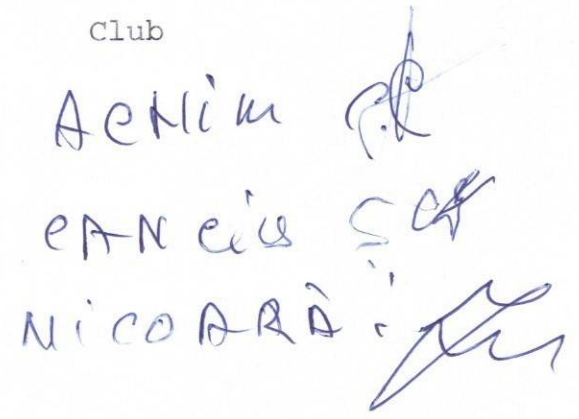 Club
ACHIM
CANCIU Ș
NICOARĂ i